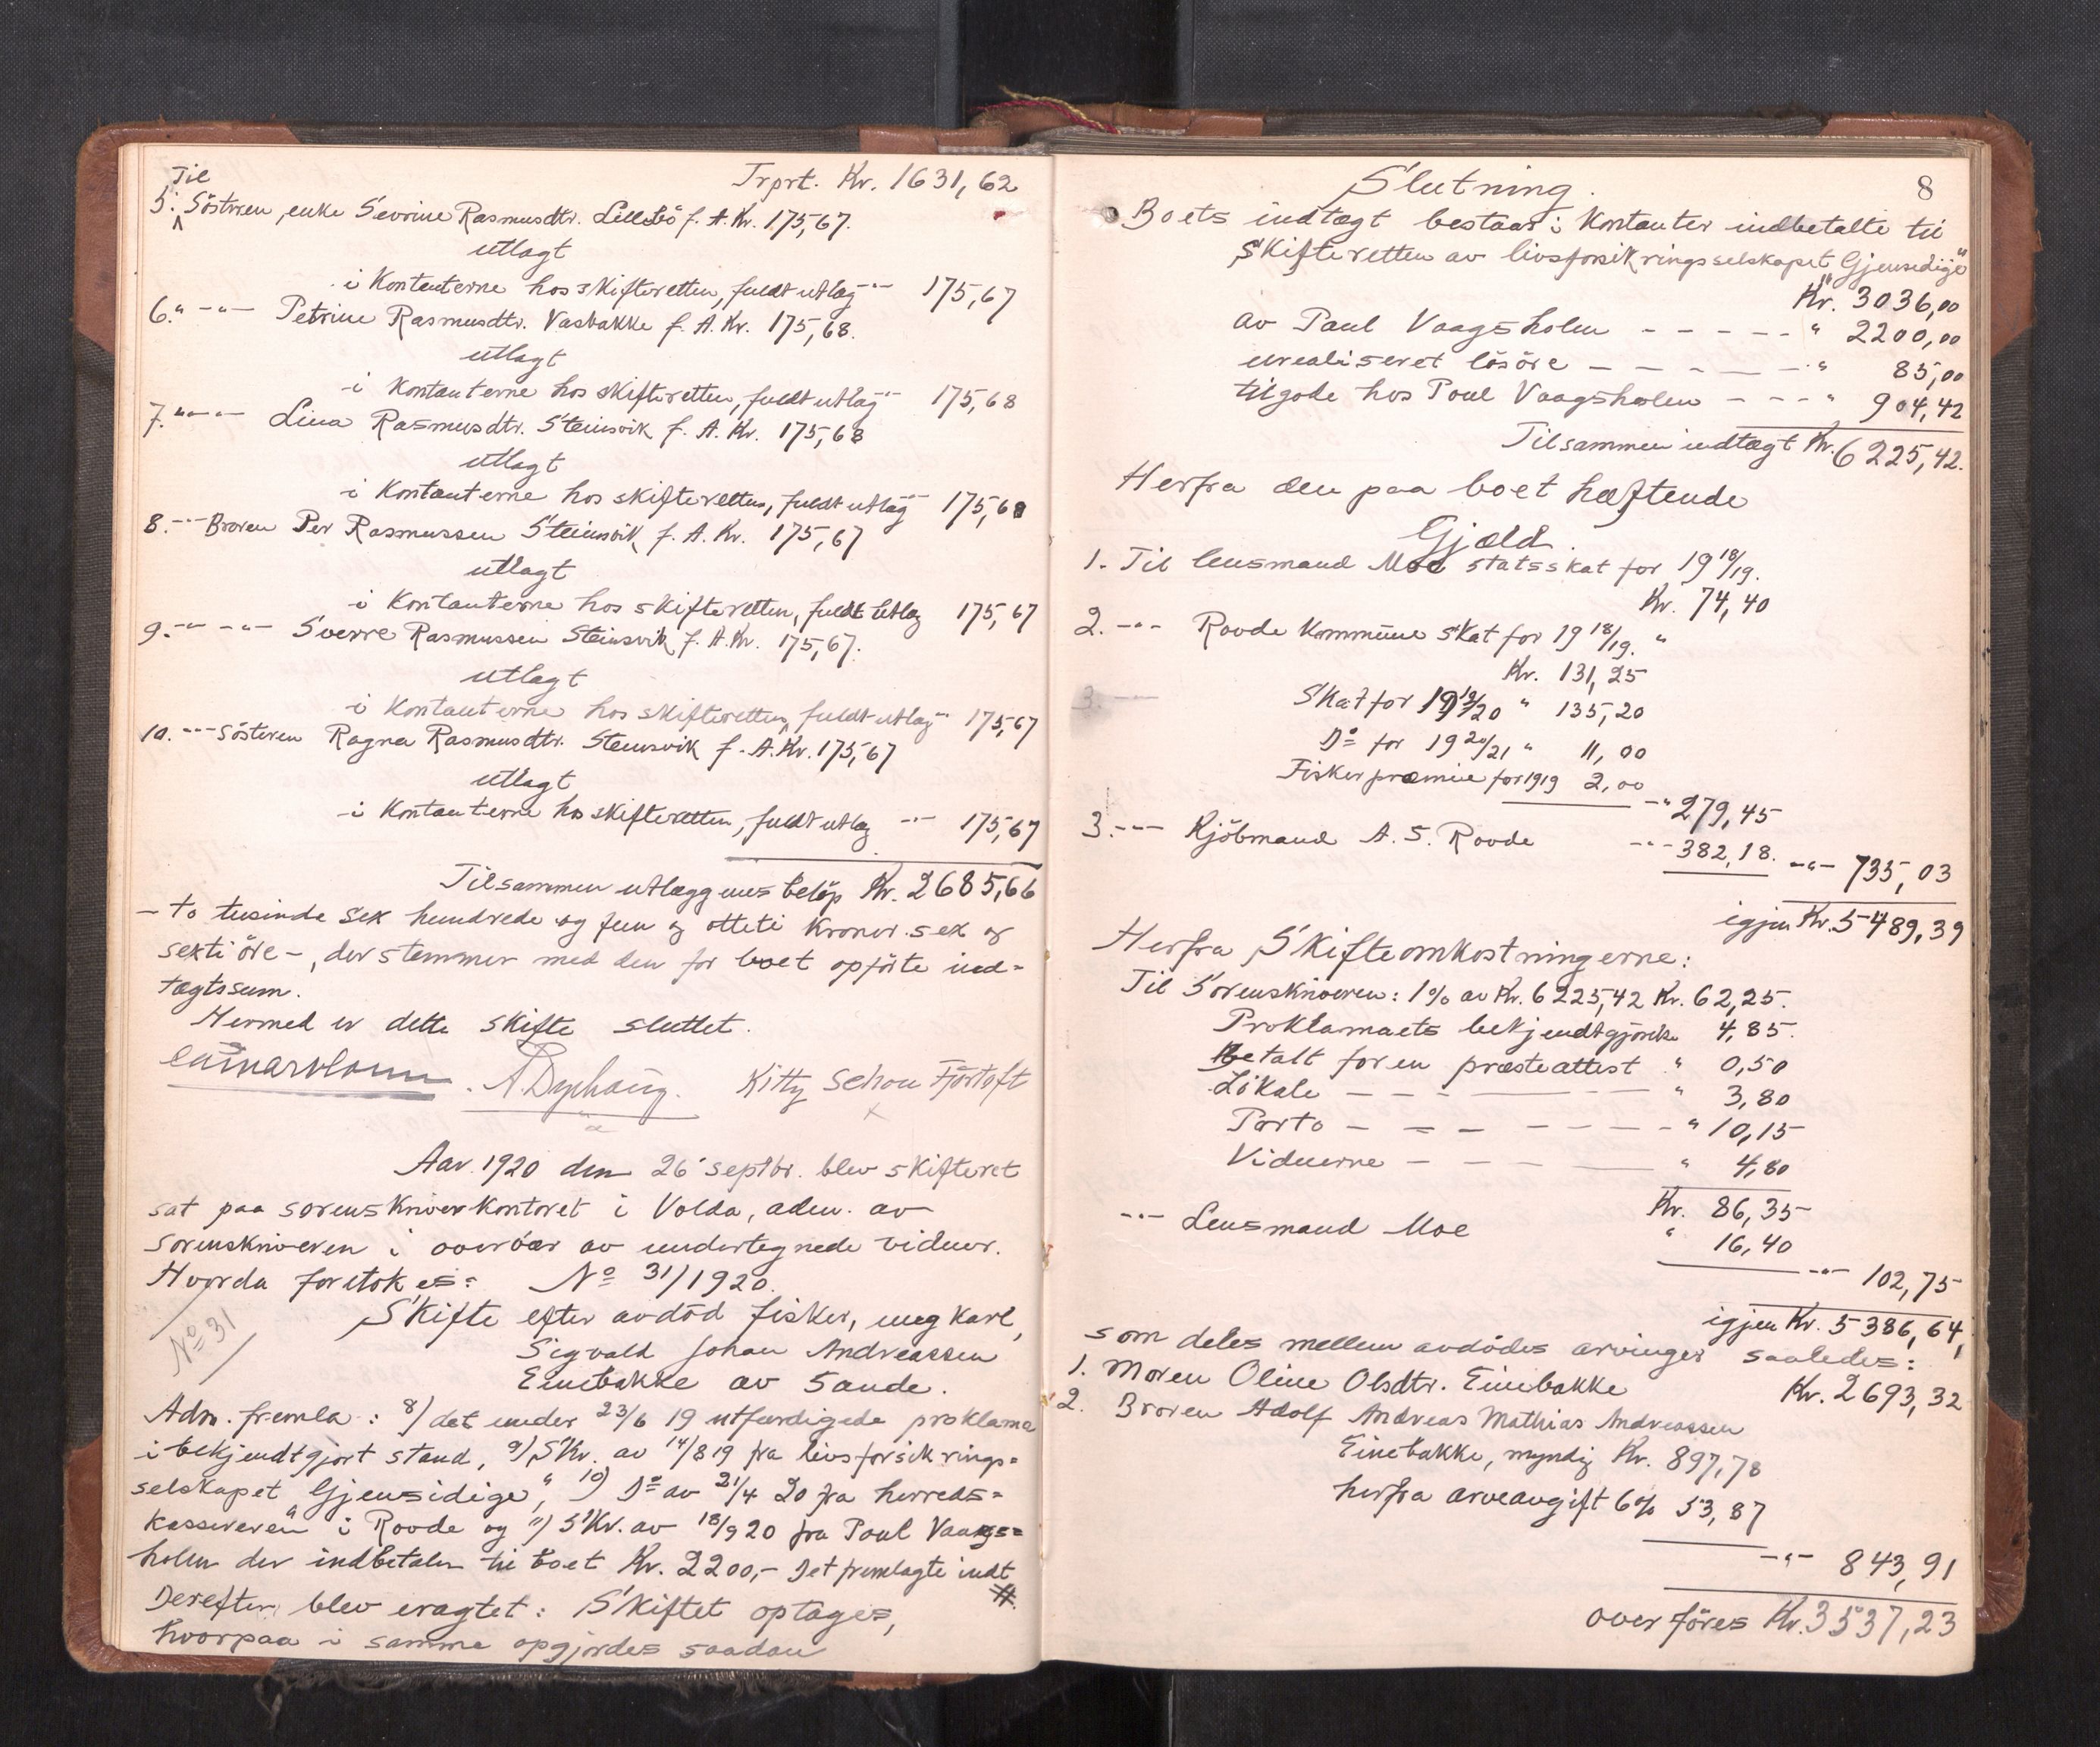 Trprt. Kr. 1631,62
Til
5. Söstren, enke Sevrine Rasmusdtr. Lillebö f. A. Kr. 175,67.
utlagt
i Kontanterne hos skifteretten, fuldt utlæg -"- 175,67
6. " -"- Petrine Rasmusdtr. Vasbakke f. A. Kr. 175,68.
utlagt
i Kontanterne hos skifteretten, fuldt utlæg -"- 175,68
7. -"- -"- Lina Rasmusdtr. Steinsvik f. A. Kr. 175,68
utlagt
i Kontanterne hos skifteretten, fuldt utlæg -"- 175,68
8. -"- Broren Per Rasmussen Steinsvik f. A. Kr. 175,67
utlagt
i Kontanterne hos skifteretten, fuldt utlæg 175,67
9. -"- -"- Sverre Rasmussen Steinsvik f. A. Kr. 175,67.
utlagt
i Kontanterne hos skifteretten, fuldt utlæg -"- 175,67
10. -"- Söstren Ragna Rasmusdtr. Steinsvik f. A. Kr. 175,67
utlagt
i Kontanterne hos skifteretten, fuldt utlæg -"- 175,67
Tilsammen utlæggenes belöp Kr. 2685,66
- to tusinde sex hundrede og fem og otteti Kroner sex og
sexti öre -, der stemmer med den for boet opförte ind=
tægtssum.
Hermed er dette skifte sluttet.
Kitty Schou Fjörtoft
Aar 1920 den 26' septbr. blev skifteret
sat paa sorenskriverkontoret i Volda, adm. av
sorenskriveren i overvær av undertegnede vidner.
Hvorda foretokes: No 31/1920.
No 31
Skifte efter avdöd fisker, ungkarl,
Sigvald Johan Andreassen
Einebakke av Sande.
Adm. fremla: 8) det under 23/6 19 utfærdigede proklama
i bekjendtgjort stand, 9) Skr. av 14/8 19 fra livsforsikrings=
selskapet "Gjensidige", 10) Do av 21/4 20 fra herreds=
kassereren i Rovde og 11) Skr. av 18/9 20 fra Poul Vaags=
holm der indbetaler til boet Kr. 2200,- Det fremlagte indt
#.
Derefter blev eragtet: Skiftet optages,
hvorpaa i samme opgjordes saadan
8
Slutning.
Boets indtægt bestaar i Kontanter indbetalte til
Skifteretten av livsforsikringsselskapet "Gjensidige"
Kr. 3036,00
av Paul Vaagsholm - - - - - " 2200,00
urealiseret lösöre - - - - - - " 85,00
tilgode hos Poul Vaagsholm - - - " 904,42
Tilsammen indtægt Kr. 6225,42.
Herfra den paa boet hæftende
Gjæld.
1. Til lensmand Moe statsskat for 19 18/19.
Kr. 74,40
2. -"- Rovde Kommune Skat for 19 18/19. "
Kr. 131,25
3. -"-
Skat for 19 19/20 " 135,20
Do for 19 20/21 " 11,00
Fiskerpræmie for 1919 2,00
-"- 279,45
3. -"- Kjöbmand A. S. Rovde -"- 382,18. -"- 735,03
igjen Kr. 5489,39
Herfra Skifteomkostningerne:
Til Sorenskriveren: 1% av Kr. 6225,42 Kr. 62,25.
Proklamaets bekjendtgjörelse 4,85.
Betalt for en præsteattest " 0,50
Lokale - - - - - " 3,80
Porto - - - - - - - " 10,15
Vidnerne - - - - - " 4,80
Kr. 86,35
-"- Lensmand Moe " 16,40
-"- 102,75
igjen Kr. 5386,64,
som deles mellem avdödes arvinger saaledes:
1. Moren Oline Olsdtr. Einebakke Kr. 2693,32
2. Broren Adolf Andreas Mathias Andreassen
Einebakke, myndig Kr. 897,78
herfra arveavgift 6% 53,87
-"- 843,91
overföres Kr. 3537,23